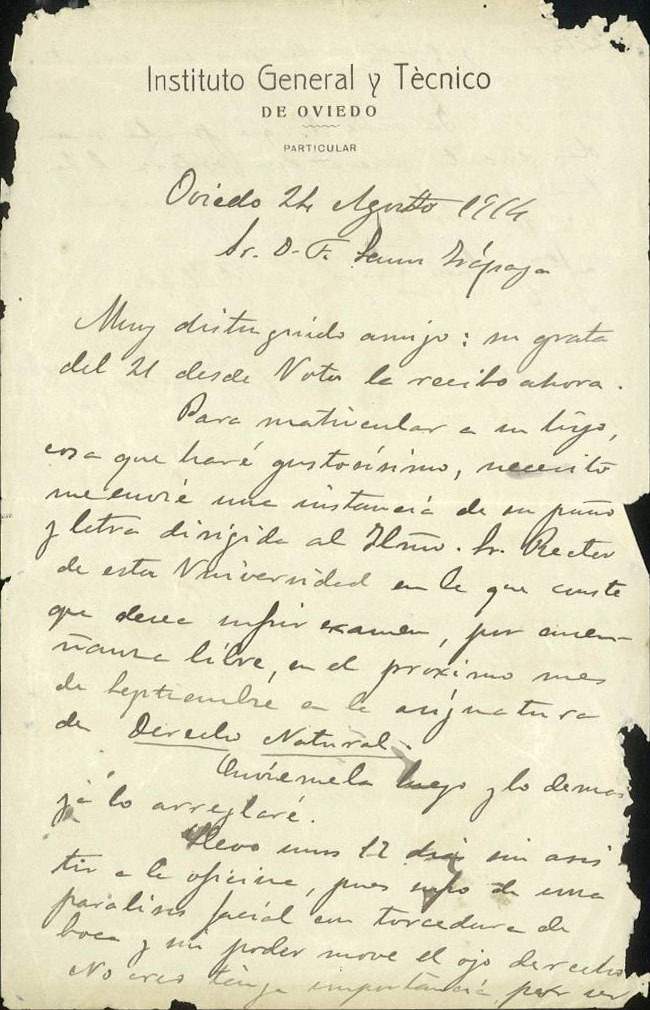 Instituto General y Tècnico
DE OVIEDO
PARTICULAR
Oviedo 24 Agosto 1914
Sr. D. F.
Muy distinguido amigo: su grata
del 21 desde Voto la recibo ahora.
Para matricular a su hijo,
cosa que haré gustosísimo, necesito
me envie una instancia de su puño
y letra dirigida al Ilmo. Sr. Rector
de esta Universidad en la que conste
que desea sufrir examen, por ense-
ñanza libre, en el proximo mes
de Septiembre en la asignatura
de Derecho Natural.
Envíemela luego y lo demas
já lo arreglaré.
Llevo unos 12 dias sin asis
tir a la oficina, pues sufro de una
paralisis facial con torcedura de
boca y sin poder move el ojo derecho
No creo tenga importancia, por ser